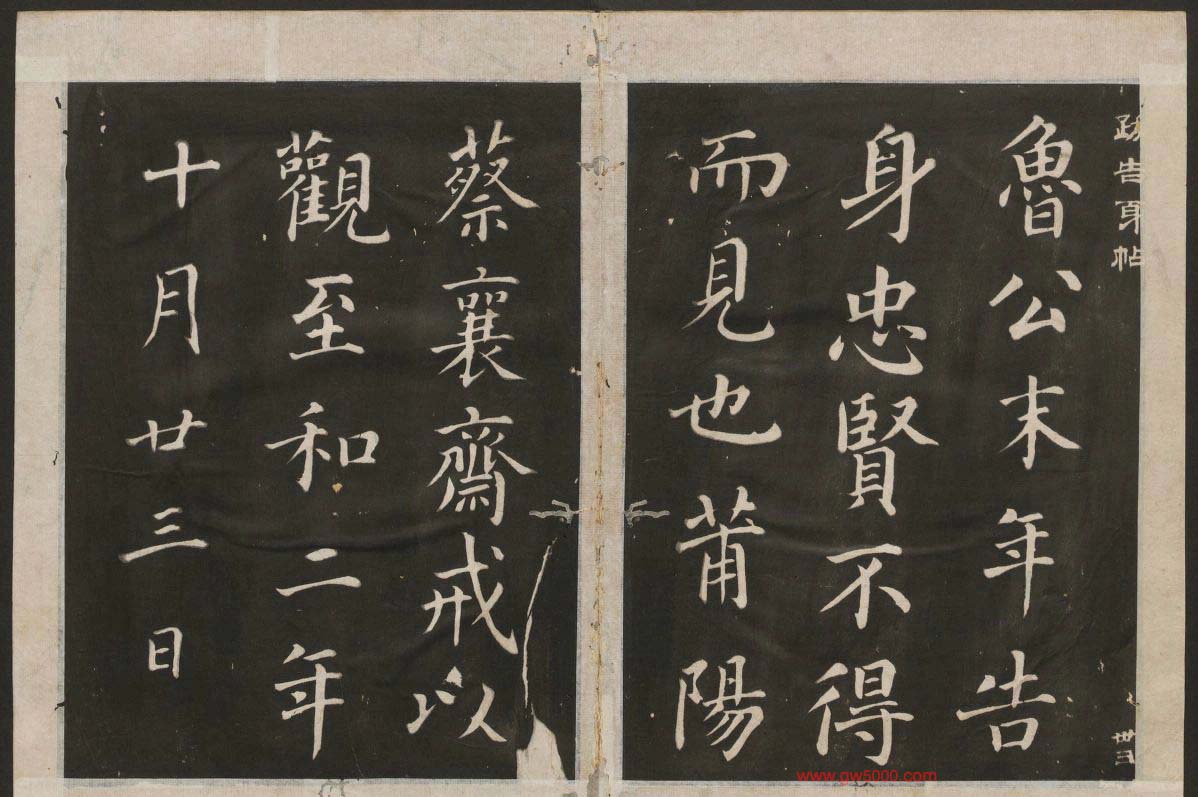 跋告身帖
魯公末年告
身忠賢不得
而見也莆陽
蔡襄齋戒以
觀至和二年
十月廿三日
卅三
www.gw5000.com